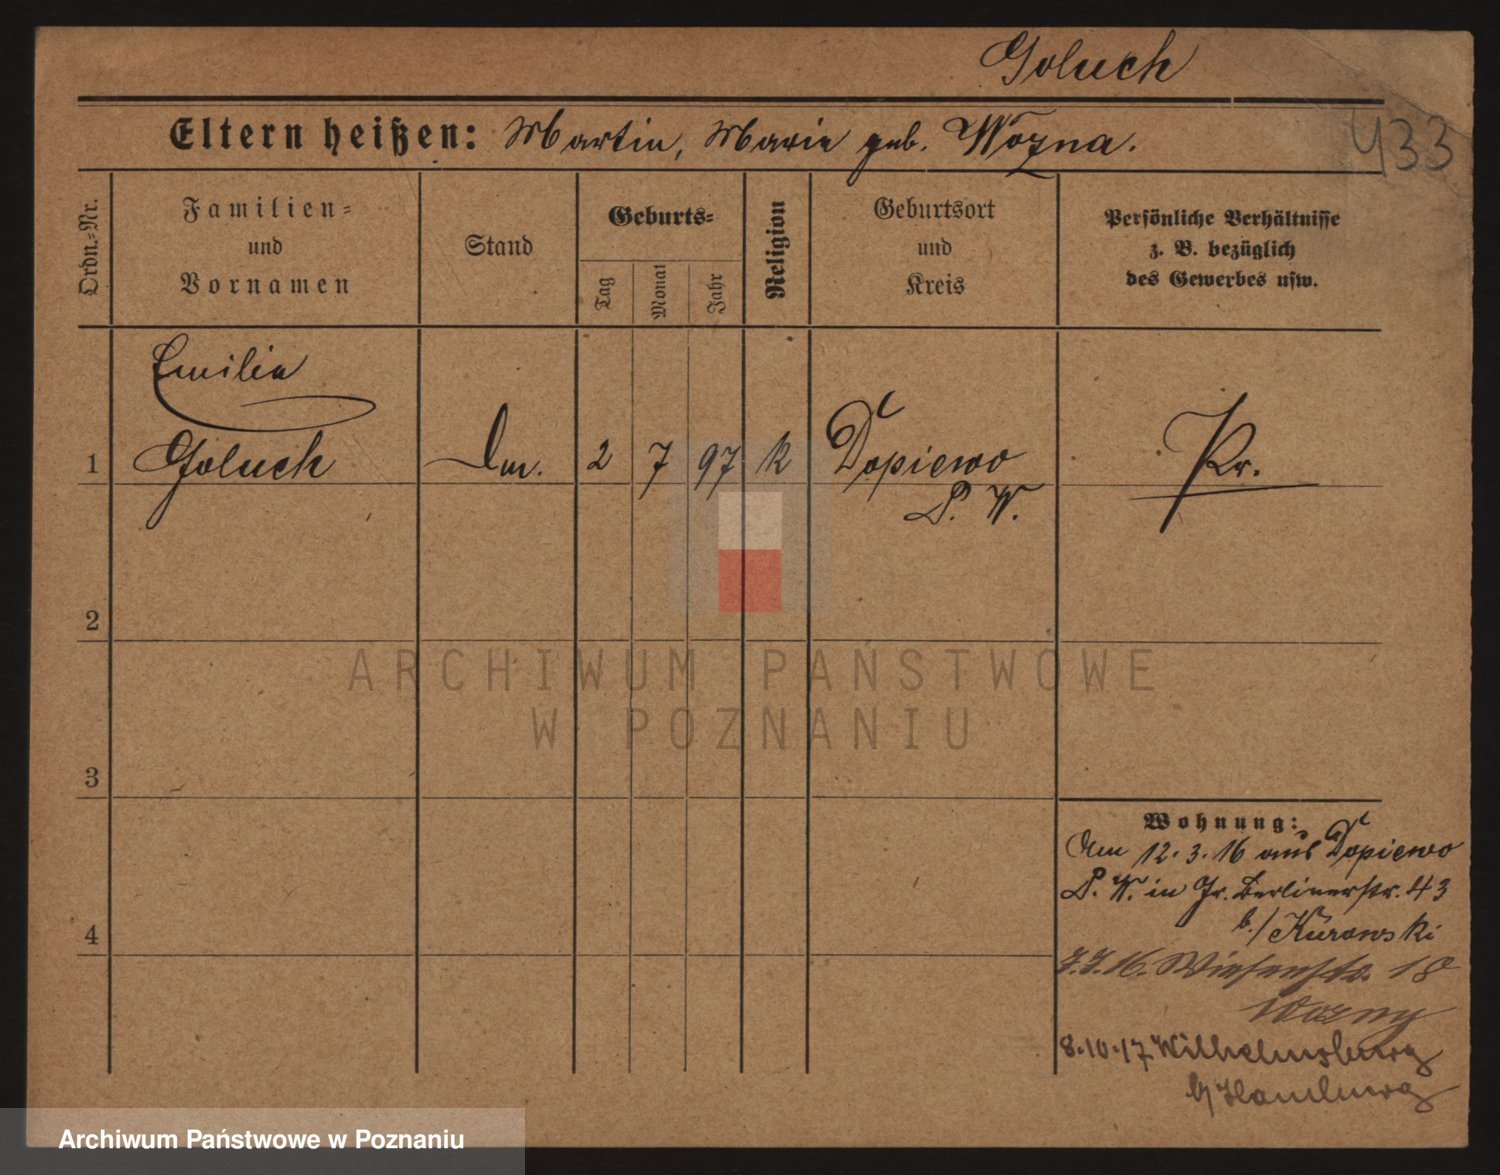 Goluch
433
Eltern heißen: Martin, Marie geb. Wozna.
Ordn.-Nr.
Familien-
und
Vornamen
Stand
Geburts-
Tag
Monat
Jahr
Religion
Geburtsort
und
Kreis
Persönliche Verhältnisse
z. B. bezüglich
des Gewerbes usw.
Emilie
1 Goluch 2 7 97 k Dopiewo Pr.
P. W.
2
ARCHIWUM PAŃSTWOWE
W POZNANIU
3
Wohnung:
Am 12.3.16 aus Dopiewo
P. W. in Gr. Berlinerstr. 43
b./Kurowski
7.7.16. Wiesenstr. 18
Wozny
4
8.10.17 Wilhelmsburg
b/Hamburg
Archiwum Państwowe w Poznaniu